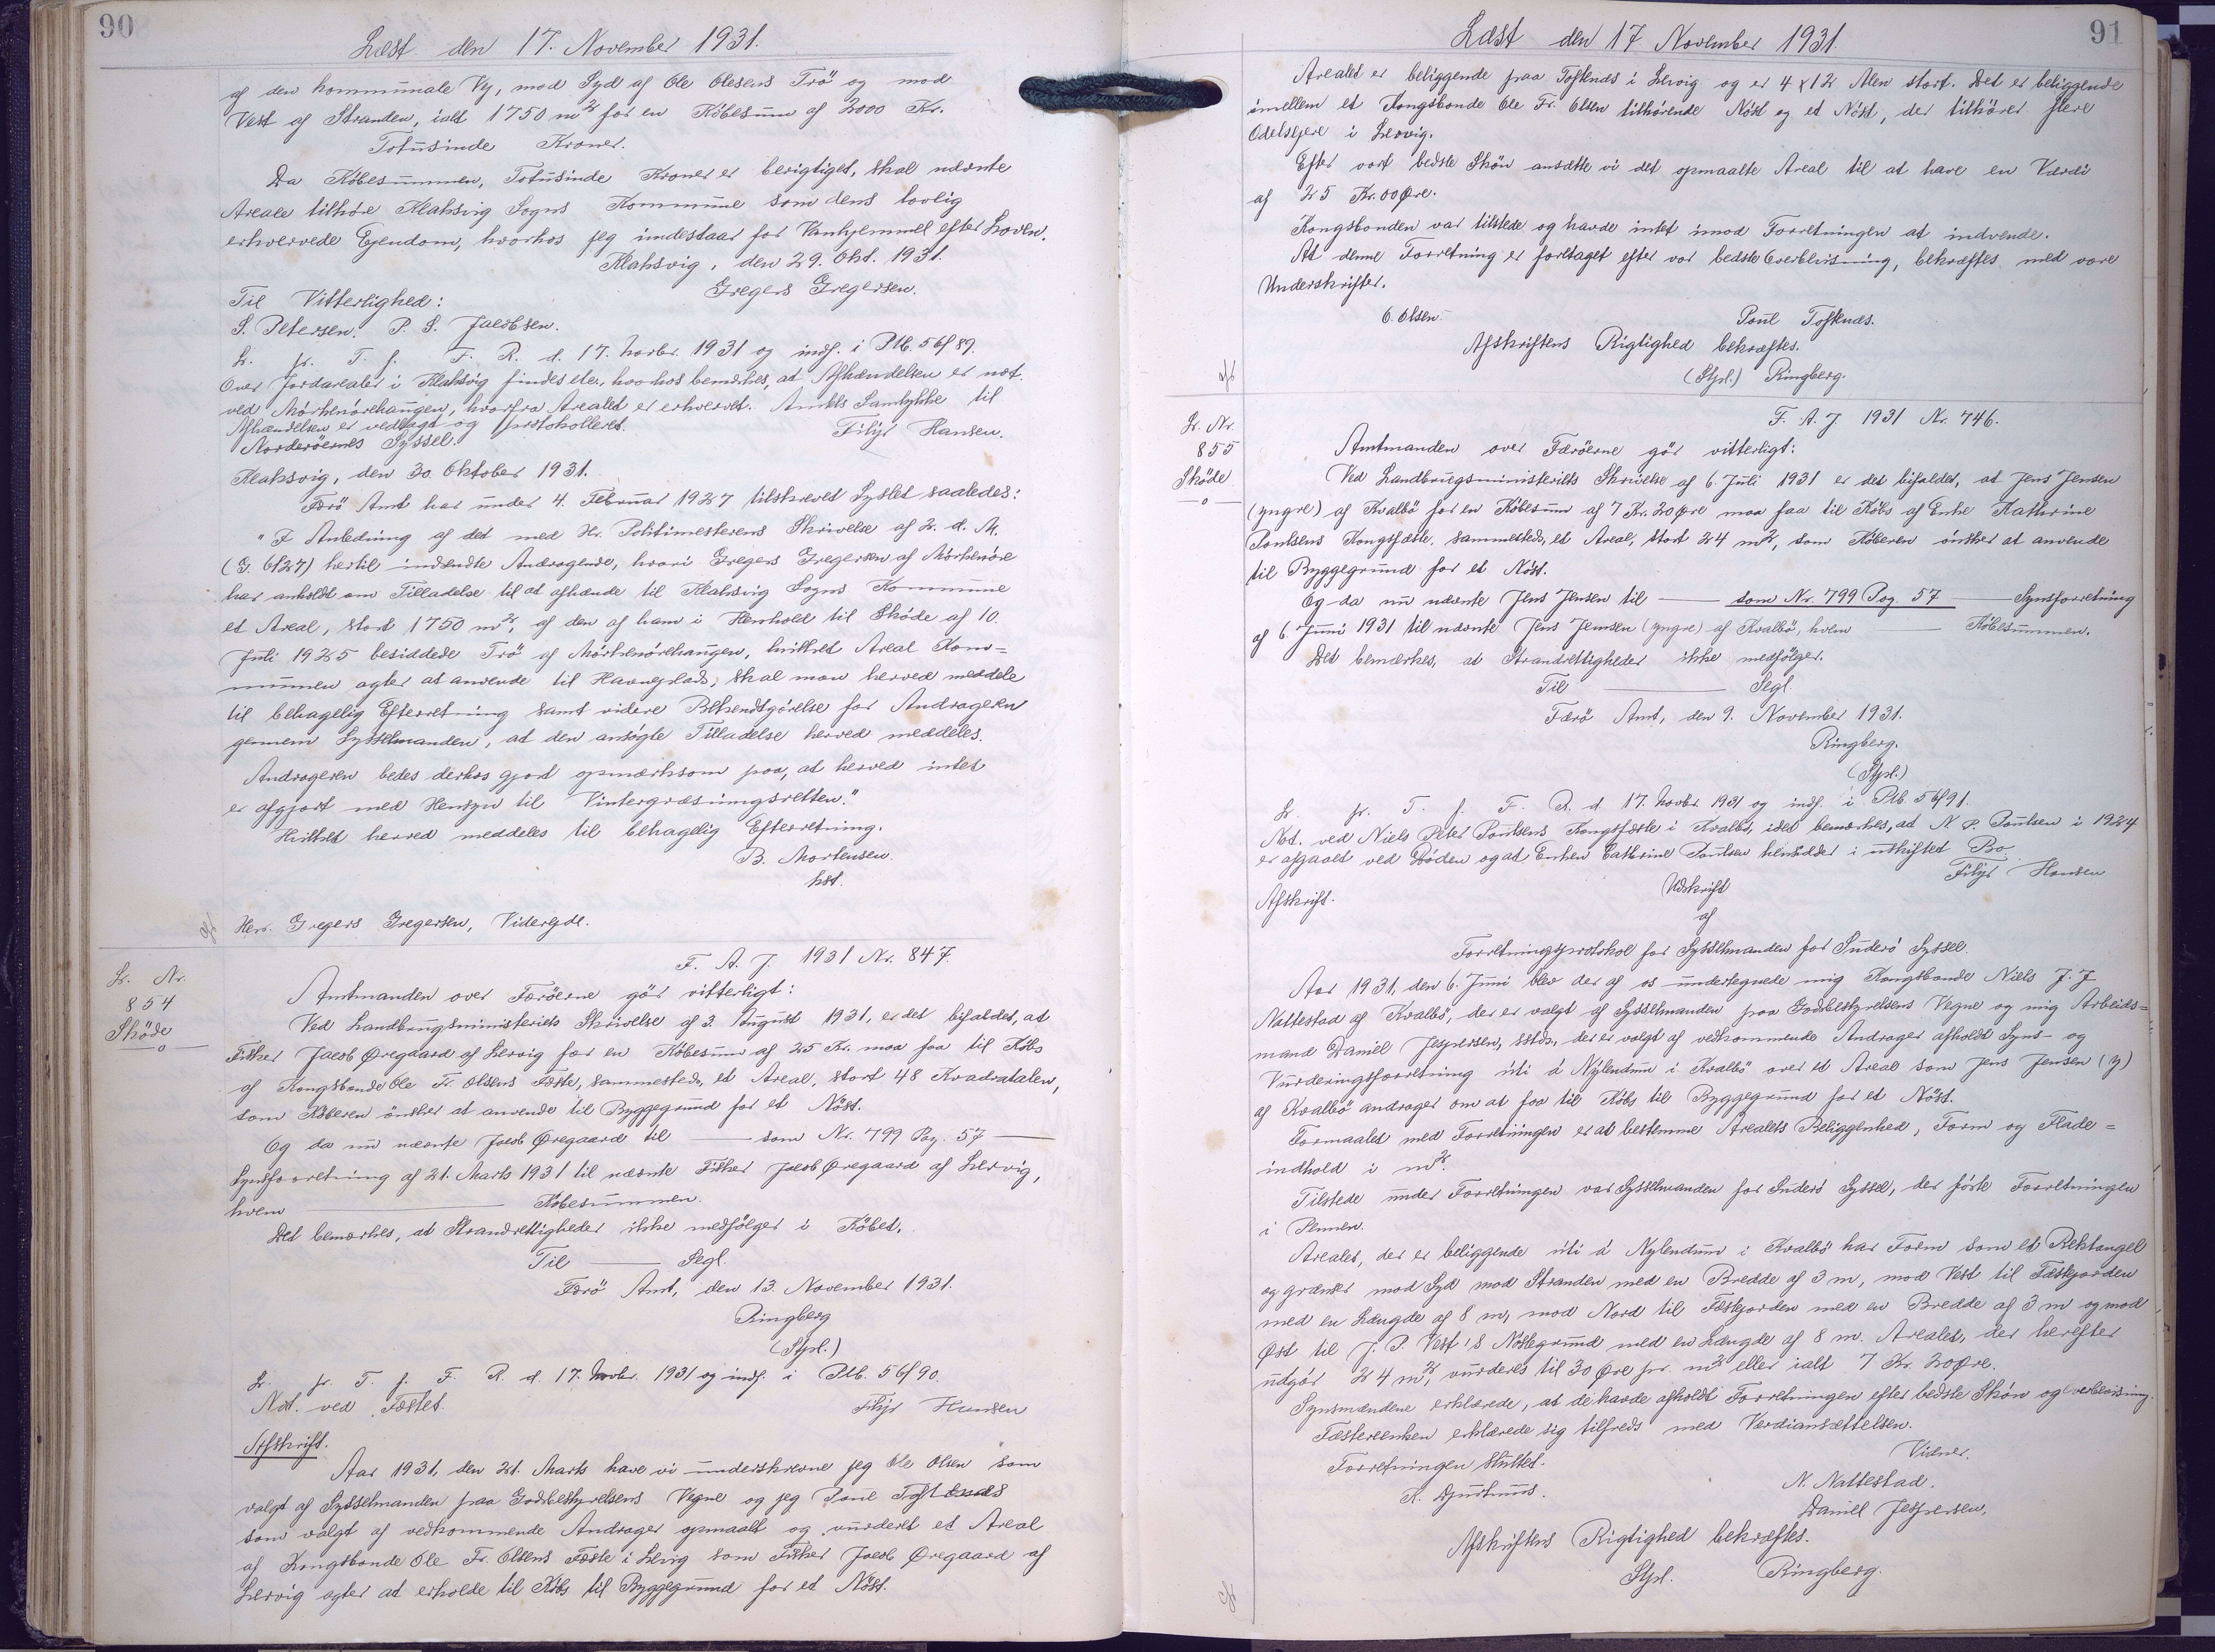 90
Læst den 17. November 1931.
af den kommunale Vej, mod Syd af Ole Olesens Trö og mod
Vest af Stranden, ialt 1750 m² for en Köbesum af 2000 Kr.
Totusinde Kroner.
Da Köbesummen, Totusinde Kroner er berigtiget, skal nævnte
Areale tilhöre Klaksvig Sogns Kommune som dens lovlig
erhvervede Ejendom, hvorhos jeg indestaar for Vanhjemmel efter Loven.
Klaksvig, den 29. Okt. 1931.
Til Vitterlighed: Gregers Gregersen.
S. Petersen. P. S. Jacobsen.
L. fr. T. f. F. R. d. 17. Novbr. 1931 og indf. i Ptb. 56/89.
Over Jordarealer i Klaksvig findes der, hvorhos bemærkes, at Afhændelsen er not.
ved Mörkenörehaugen, hvorfra Arealet er erhvervet. Amtets Samtykke til
Afhændelsen er vedlagt og protokolleret. Filip Hansen.
Norderöernes Syssel.
Klaksvig, den 30. Oktober 1931.
Færö Amt har under 4. Februar 1927 tilskrevet Syslet saaledes:
"I Anledning af det med Hr. Politimesterens Skrivelse af 2. d. M.
(G. 6/27) hertil indsendte Andragende, hvori Gregers Gregersen af Mörkenöre
har anholdt om Tilladelse til at afhænde til Klaksvig Sogns Kommune
et Areal, stort 1750 m², af den af ham i Henhold til Sköde af 10.
Juli 1925 besiddede Trö af Mörkenörehaugen, hvilket Areal Kom=
munen agter at anvende til Havneplads, skal man herved meddele
til behagelig Efterretning samt videre Bekendtgörelse for Andrageren
gennem Sysselmanden, at den ansögte Tilladelse herved meddeles.
Andrageren bedes derhos gjort opmærksom paa, at herved intet
er afgjort med Hensyn til Vintergræsningsretten."
Hvilket herved meddeles til behagelig Efterretning.
B. Mortensen.
kst.
Herr. Gregers Gregersen, Videregde.
L. Nr.
854
Sköde
F. A. J. 1931 Nr. 847.
Amtmanden over Færöerne gör vitterligt:
Ved Landbrugsministeriets Skrivelse af 3. August 1931, er det bifaldet, at
Fisker Jacob Øregaard af Lervig for en Köbesum af 25 Kr. maa faa til Köbs
af Kongsbonde Ole Fr. Olsens Fæste, sammesteds, et Areal, stort 48 Kvadratalen,
som Köberen önsker at anvende til Byggegrund for et Nöst.
Og da nu nævnte Jacob Øregaard til — som Nr. 799 Pag. 57 —
Synsforretning af 21. Marts 1931 til nævnte Fisker Jacob Øregaard af Lervig,
hvem — Köbesummen.
Det bemærkes, at Strandrettigheder ikke medfölger i Köbet.
Til — Segl.
Færö Amt, den 13. November 1931.
Ringberg
(Stpl.)
L. fr. T. f. F. R. d. 17. Novbr. 1931 og indf. i Ptb. 56/90.
Not. ved Fæstet. Filip Hansen
Afskrift.
Aar 1931, den 21. Marts have vi underskrevne jeg Ole Olsen som
valgt af Sysselmanden paa Godsbestyrelsens Vegne og jeg Poul Toftenæs
som valgt af vedkommende Andrager opmaalt og vurderet et Areal
af Kongsbonde Ole Fr. Olsens Fæste i Lervig som Fisker Jacob Øregaard af
Lervig agter at erholde til Köbs til Byggegrund for et Nöst.
91
Læst den 17 November 1931.
Arealet er beliggende paa Toftenæs i Lervig og er 4 x 12 Alen stort. Det er beliggende
imellem et Kongsbonde Ole Fr. Olsen tilhörende Nöst og et Nöst, der tilhörer flere
Odelsejere i Lervig.
Efter vort bedste Skön ansætte vi det opmaalte Areal til at have en Værdi
af 25 Kr. 00 Øre.
Kongsbonden var tilstede og havde intet imod Forretningen at indvende.
At denne Forretning er foretaget efter vor bedste Overbevisning, bekræftes med vore
Underskrifter.
O. Olsen. Poul Toftenæs.
Afskriftens Rigtighed bekræftes.
(Stpl.) Ringberg.
L. Nr.
855
Sköde
F. A. J. 1931 Nr. 746.
Amtmanden over Færöerne gör vitterligt:
Ved Landbrugsministeriets Skrivelse af 6. Juli 1931 er det bifaldet, at Jens Jensen
(yngre) af Kvalbö for en Köbesum af 7 Kr. 20 Øre maa faa til Köbs af Enke Kathrine
Poulsens Kongsfæste, sammesteds, et Areal, stort 24 m², som Köberen önsker at anvende
til Byggegrund for et Nöst.
Og da nu nævnte Jens Jensen til — som Nr. 799 Pag. 57 — Synsforretning
af 6. Juni 1931 til nævnte Jens Jensen (yngre) af Kvalbö, hvem — Köbesummen.
Det bemærkes, at Strandrettigheder ikke medfölger.
Til — Segl.
Færö Amt, den 9. November 1931.
Ringberg.
(Stpl.)
L. fr. T. f. F. R. d. 17. Novbr. 1931 og indf. i Ptb. 56/91.
Not. ved Niels Peter Poulsens Kongsfæste i Kvalbö, idet bemærkes, at N. P. Poulsen i 1924
er afgaaet ved Döden og at Enken Cathrine Poulsen hensidder i uskiftet Bo
Filip Hansen
Afskrift. Udskrift
af
Forretningsprotokol for Sysselmanden for Suderö Syssel.
Aar 1931, den 6. Juni blev der af os undertegnede mig Kongsbonde Niels J. J
Nattestad af Kvalbö, der er valgt af Sysselmanden paa Godsbestyrelsens Vegne og mig Arbeids=
mand Daniel Jespersen, sstds., der er valgt af vedkommende Andrager afholdt Syns- og
Vurderingsforretning úti á Nylendum i Kvalbö over et Areal som Jens Jensen (y)
af Kvalbö andrager om at faa til Köbs til Byggegrund for et Nöst.
Formaalet med Forretningen er at bestemme Arealets Beliggenhed, Form og Flade=
indhold i m².
Tilstede under Forretningen var Sysselmanden for Suderö Syssel, der förte Forretningen
i Pennen.
Arealet, der er beliggende úti á Nylendum i Kvalbö har Form som et Rektangel
og grænser mod Syd mod Stranden med en Bredde af 3 m, mod Vest til Fæstejorden
med en Længde af 8 m, mod Nord til Fæstejorden med en Bredde af 3 m og mod
Øst til J. P. Vest's Nöstegrund med en Længde af 8 m. Arealet, der herefter
udgör 24 m², vurderes til 30 Øre pr. m² eller ialt 7 Kr. 20 Øre.
Synsmændene erklærede, at de havde afholdt Forretningen efter bedste Skön og Overbevisning.
Fæsterenken erklærede sig tilfreds med Værdiansættelsen.
Forretningen sluttet. Vidner.
N. Nattestad.
Daniel Jespersen.
Afskriftens Rigtighed bekræftes.
Stpl. Ringberg.